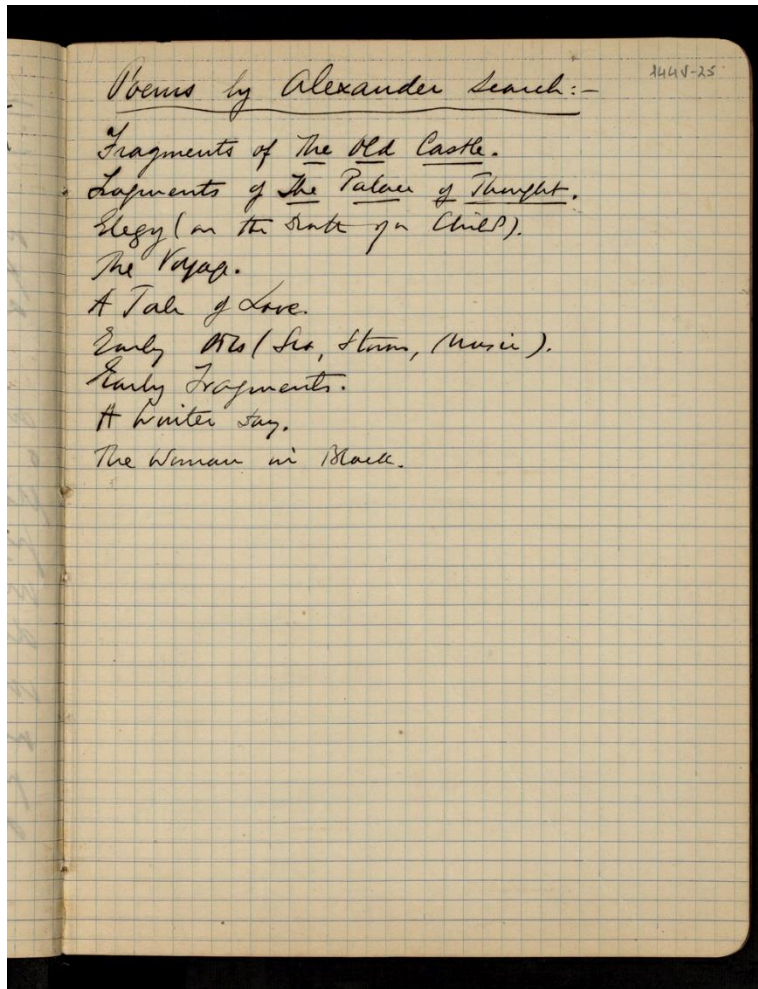 144V-25
Poems by Alexander Search:-
Fragments of The Old Castle.
Fragments of The Palace of Thought.
Elegy (on the Death of a Child).
The Voyage.
A Tale of Love.
Early Bits (Sea, Storm, Music).
Early Fragments.
A Winter Day.
The Woman in Black.